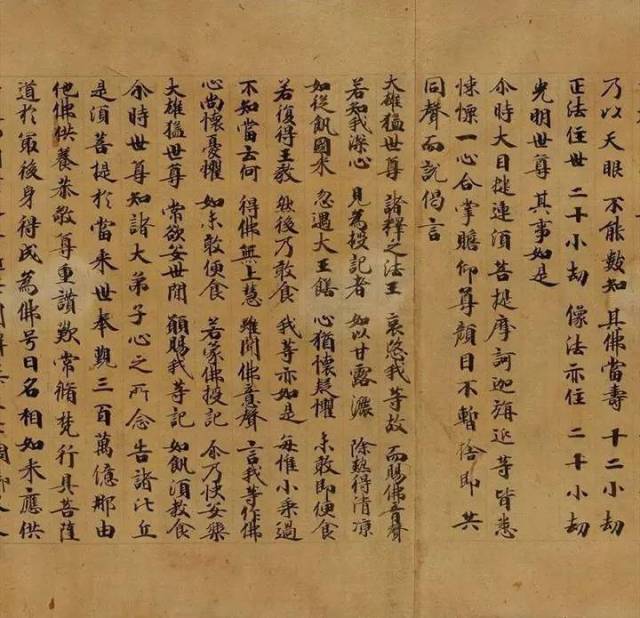 乃以天眼 不能數知 其佛當壽 十二小劫
正法住世 二十小劫 像法亦住 二十小劫
光明世尊 其事如是
尒時大目揵連須菩提摩訶迦旃延等皆悉
悚慄一心合掌瞻仰尊顏目不暫捨即共
同聲而說偈言
大雄猛世尊 諸釋之法王 哀愍我等故 而賜佛音聲
若知我深心 見為授記者 如以甘露灑 除熱得清涼
如從飢國來 忽遇大王饍 心猶懷疑懼 未敢即便食
若復得王教 然後乃敢食 我等亦如是 每惟小乘過
不知當云何 得佛無上慧 雖聞佛音聲 言我等作佛
心尚懷憂懼 如未敢便食 若蒙佛授記 尒乃快安樂
大雄猛世尊 常欲安世間 願賜我等記 如飢須教食
尒時世尊知諸大弟子心之所念告諸比丘
是須菩提於當來世奉覲三百萬億那由
他佛供養恭敬尊重讚歎常脩梵行具菩薩
道於最後身得成為佛号曰名相如來應供